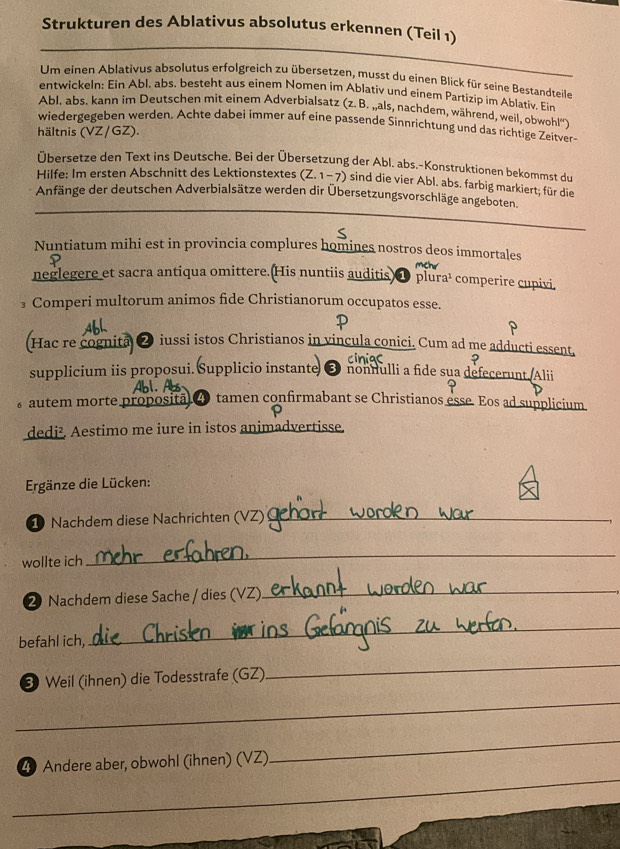 Strukturen des Ablativus absolutus erkennen (Teil 1)
Um einen Ablativus absolutus erfolgreich zu übersetzen, musst du einen Blick für seine Bestandteile
entwickeln: Ein Abl. abs. besteht aus einem Nomen im Ablativ und einem Partizip im Ablativ. Ein
Abl. abs. kann im Deutschen mit einem Adverbialsatz (z. B. „als, nachdem, während, weil, obwohl“)
wiedergegeben werden. Achte dabei immer auf eine passende Sinnrichtung und das richtige Zeitver-
hältnis (VZ/GZ).
Übersetze den Text ins Deutsche. Bei der Übersetzung der Abl. abs.-Konstruktionen bekommst du
Hilfe: Im ersten Abschnitt des Lektionstextes (Z. 1–7) sind die vier Abl. abs. farbig markiert; für die
Anfänge der deutschen Adverbialsätze werden dir Übersetzungsvorschläge angeboten.
S
Nuntiatum mihi est in provincia complures homines nostros deos immortales
P mehr
neglegere et sacra antiqua omittere. (His nuntiis auditis) 1 plura¹ comperire cupivi.
3 Comperi multorum animos fide Christianorum occupatos esse.
Abl P P
(Hac re cognita) 2 iussi istos Christianos in vincula conici. Cum ad me adducti essent,
einige P
supplicium iis proposui. (Supplicio instante) 3 nonnulli a fide sua defecerunt. Alii
Abl. Abs P P
6 autem morte proposita) 4 tamen confirmabant se Christianos esse. Eos ad supplicium
P
dedi². Aestimo me iure in istos animadvertisse.
Ergänze die Lücken:
1 Nachdem diese Nachrichten (VZ) gehört worden war,
wollte ich mehr erfahren.
2 Nachdem diese Sache / dies (VZ) erkannt werden war,
befahl ich, die Christen ins Gefängnis zu werfen.
3 Weil (ihnen) die Todesstrafe (GZ)
4 Andere aber, obwohl (ihnen) (VZ)